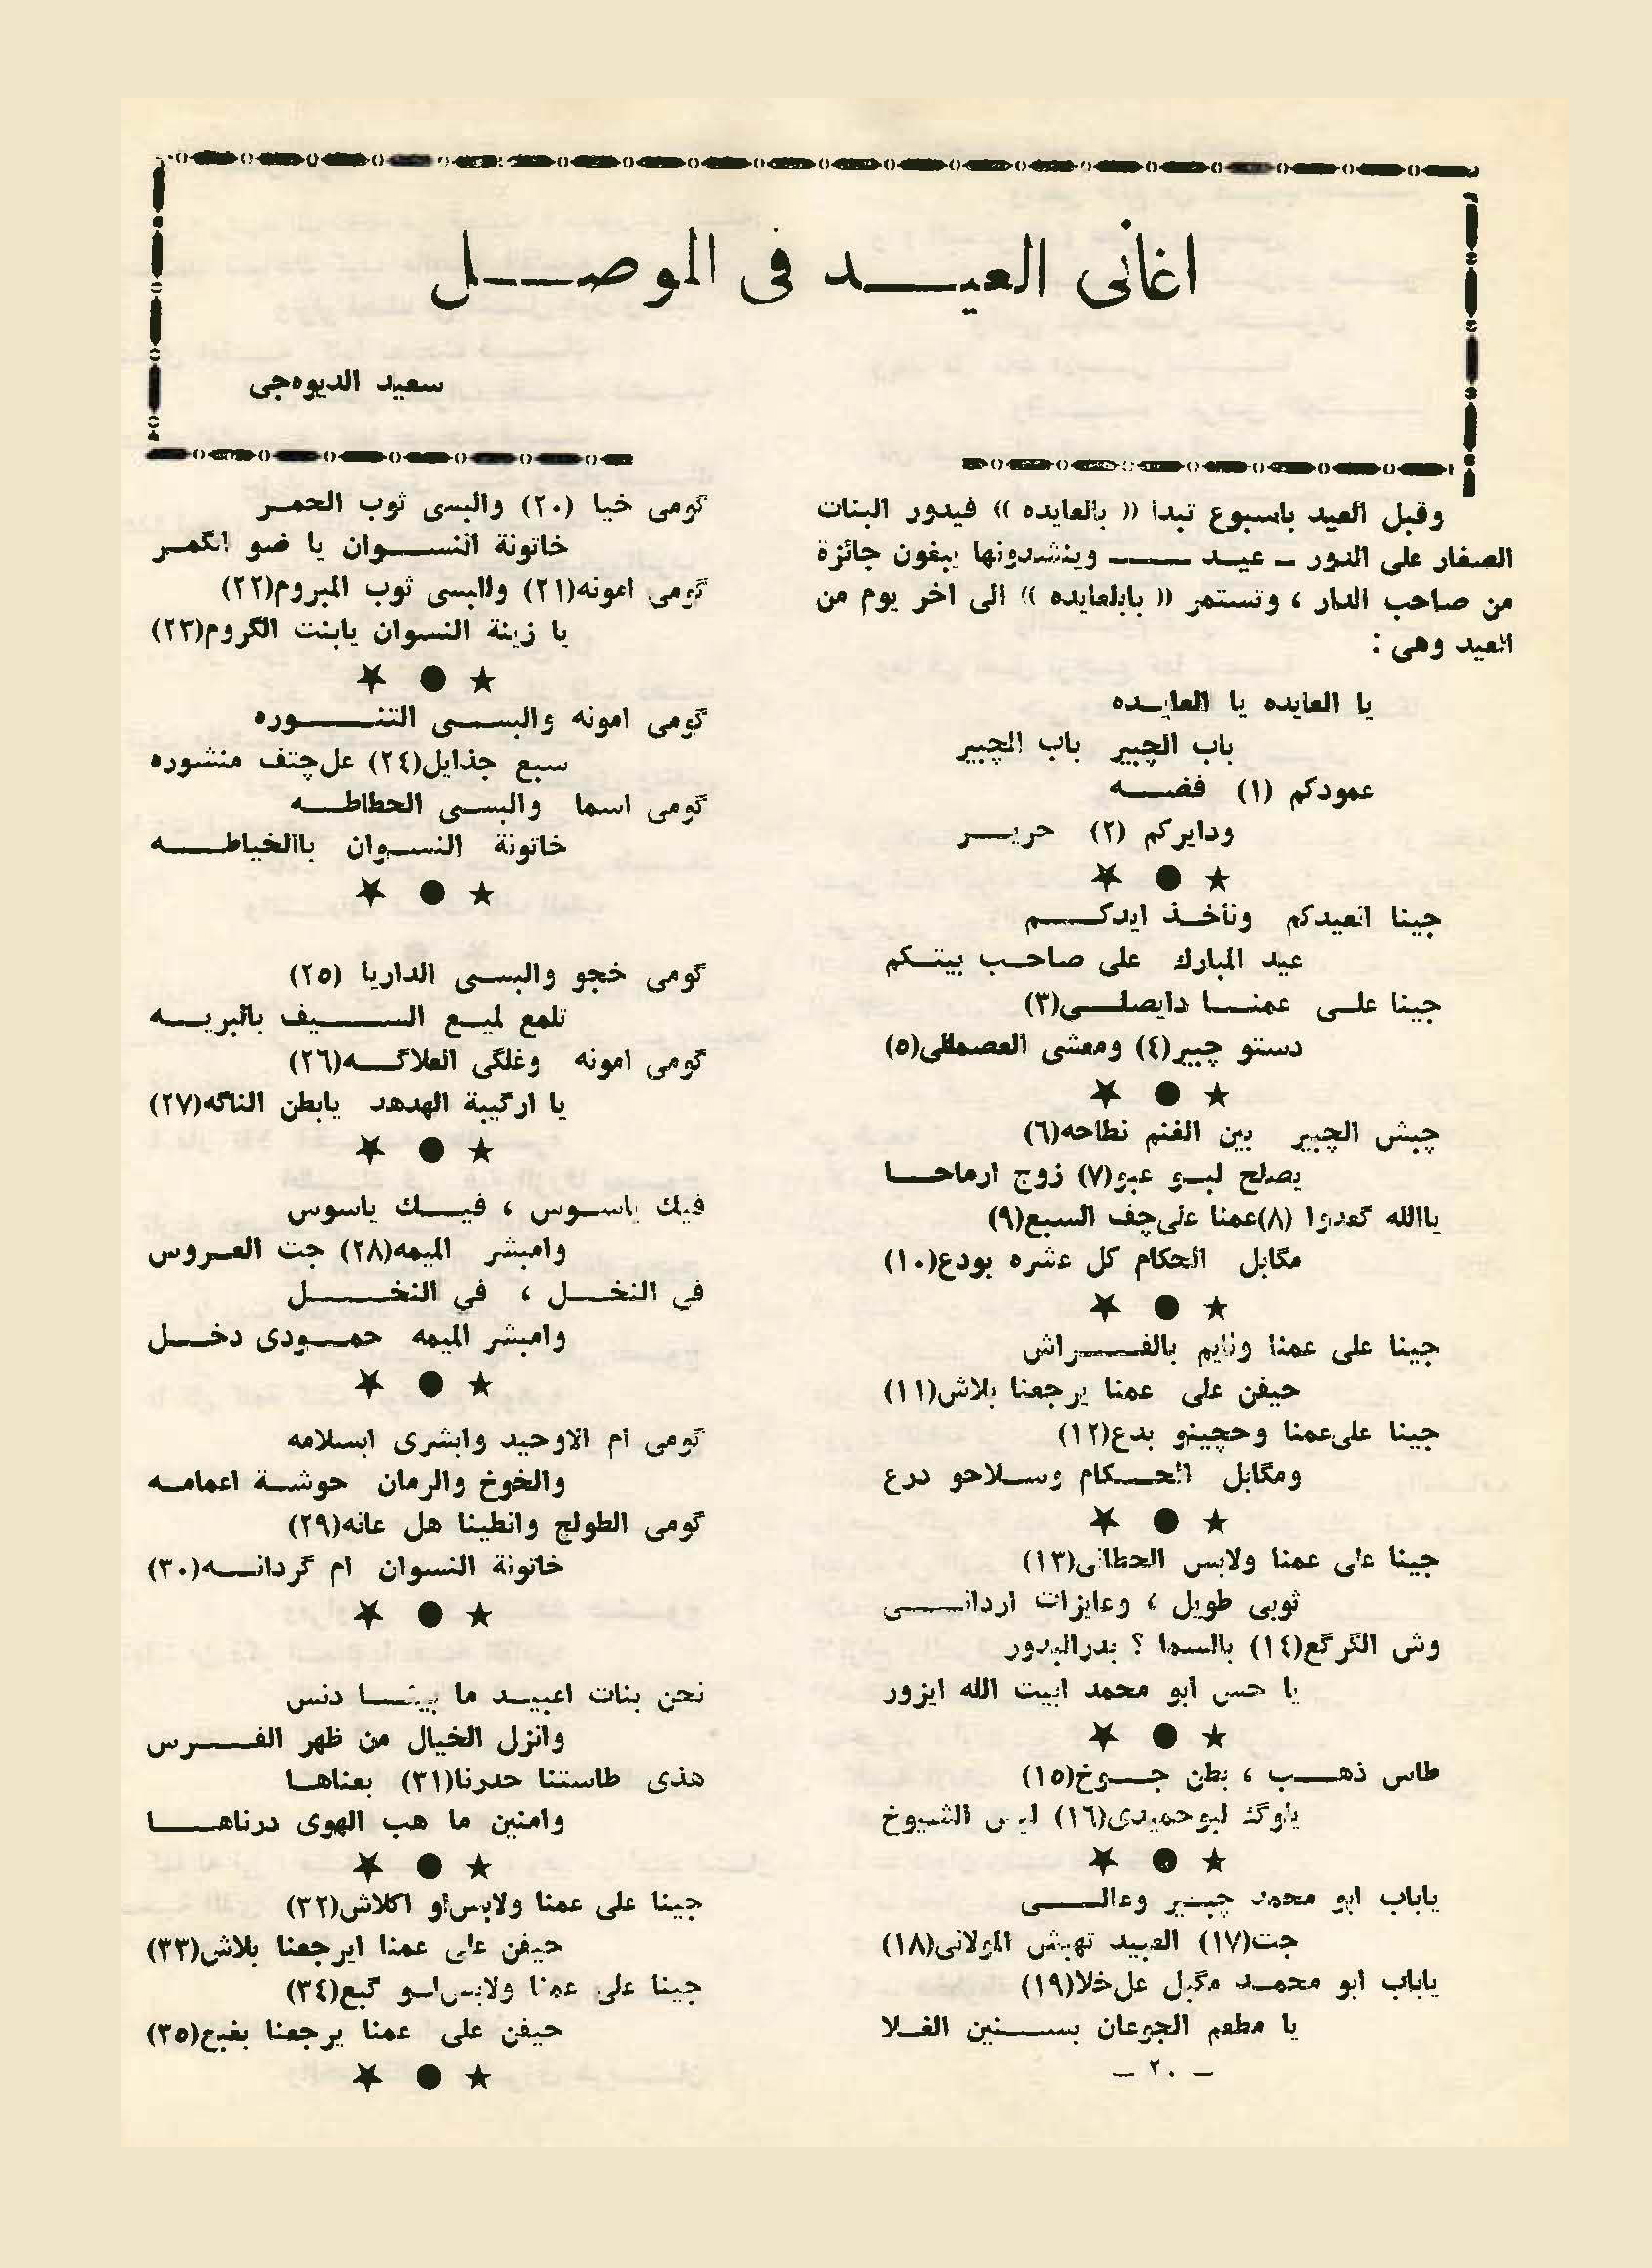 اغاني العيد في الموصل
سعيد الديوه‌جي
وقبل العيد باسبوع تبدأ « بالعايده » فيدور البنات
الصغار على الدور ـ عيد ـــ وينشدونها يبغون جائزة
من صاحب الدار ، وتستمر « بابلعايده » الى اخر يوم من
العيد وهي :
يا العايده يا العايده
باب الچبير باب الچبير
عمودكم (١) فضه
ودايركم (٢) حرير
★ ● ★
جينا انعيدكم وناخذ ايدكم
عيد المبارك على صاحب بيتكم
جينا على عمنا دايصلي(٣)
دستو چبير(٤) ومعشى العصمللي(٥)
★ ● ★
چبش الچبير بين الغنم نطاحه(٦)
يصلح لبو عبو(٧) زوج ارماحا
ياالله گعدوا (٨)عمنا على چف السبع(٩)
مگابل الحكام كل عشره بودع(١٠)
★ ● ★
جينا على عمنا ونايم بالفراش
حيفن على عمنا يرجعنا بلاش(١١)
جينا على عمنا وحچينو بدع(١٢)
ومگابل الحكام وسلاحو درع
★ ● ★
جينا على عمنا ولابس الحطاني(١٣)
ثوبي طويل ، وعايزات ارداني
وش الگرگع(١٤) بالسما ؟ بدرالبدور
يا حس ابو محمد ابيت الله ايزور
★ ● ★
طاس ذهب ، بطن جوخ(١٥)
ياوگد لبوحميدي(١٦) الشيوخ
★ ● ★
ياباب ابو محمد چبير وعالي
جت(١٧) العبيد تهبش المولاني(١٨)
ياباب ابو محمد مگبل عل خلا(١٩)
يا مطعم الجوعان بسنين الغلا
گومي خيا (٢٠) والبسي ثوب الحمر
خاتونة النسوان يا ضو الگمر
گومي امونه(٢١) والبسي ثوب المبروم(٢٢)
يا زينة النسوان يابنت الگروم(٢٣)
★ ● ★
گومي امونه والبسي التنوره
سبع جذايل(٢٤) عل چتف منشوره
گومي اسما والبسي الحطاطه
خاتونة النسوان باالخياطه
★ ● ★
گومي خجو والبسي الداريا (٢٥)
تلمع لميع السيف بالبريه
گومي امونه وغلگي العلاگه(٢٦)
يا ارگيبة الهدهد يابطن الناگه(٢٧)
★ ● ★
فيك ياسوس ، فيك ياسوس
وامبشر الميمه(٢٨) جت العروس
في النخل ، في النخل
وامبشر الميمه حمودي دخل
★ ● ★
گومي ام الاوحيد وابشري ابسلامه
والخوخ والرمان حوشة اعمامه
گومي الطولج وانطينا هل عانه(٢٩)
خاتونة النسوان ام گردانه(٣٠)
★ ● ★
نحن بنات اعبيد ما بينا دنس
وانزل الخيال من ظهر الفرس
هذي طاستنا حدرنا(٣١) بعناها
وامنين ما هب الهوى درناها
★ ● ★
جينا على عمنا ولابس‌او اكلاش(٣٢)
حيفن على عمنا ايرجعنا بلاش(٣٣)
جينا على عمنا ولابس‌لسو گبع(٣٤)
حيفن على عمنا يرجعنا بغبع(٣٥)
★ ● ★
– ٢٠ –